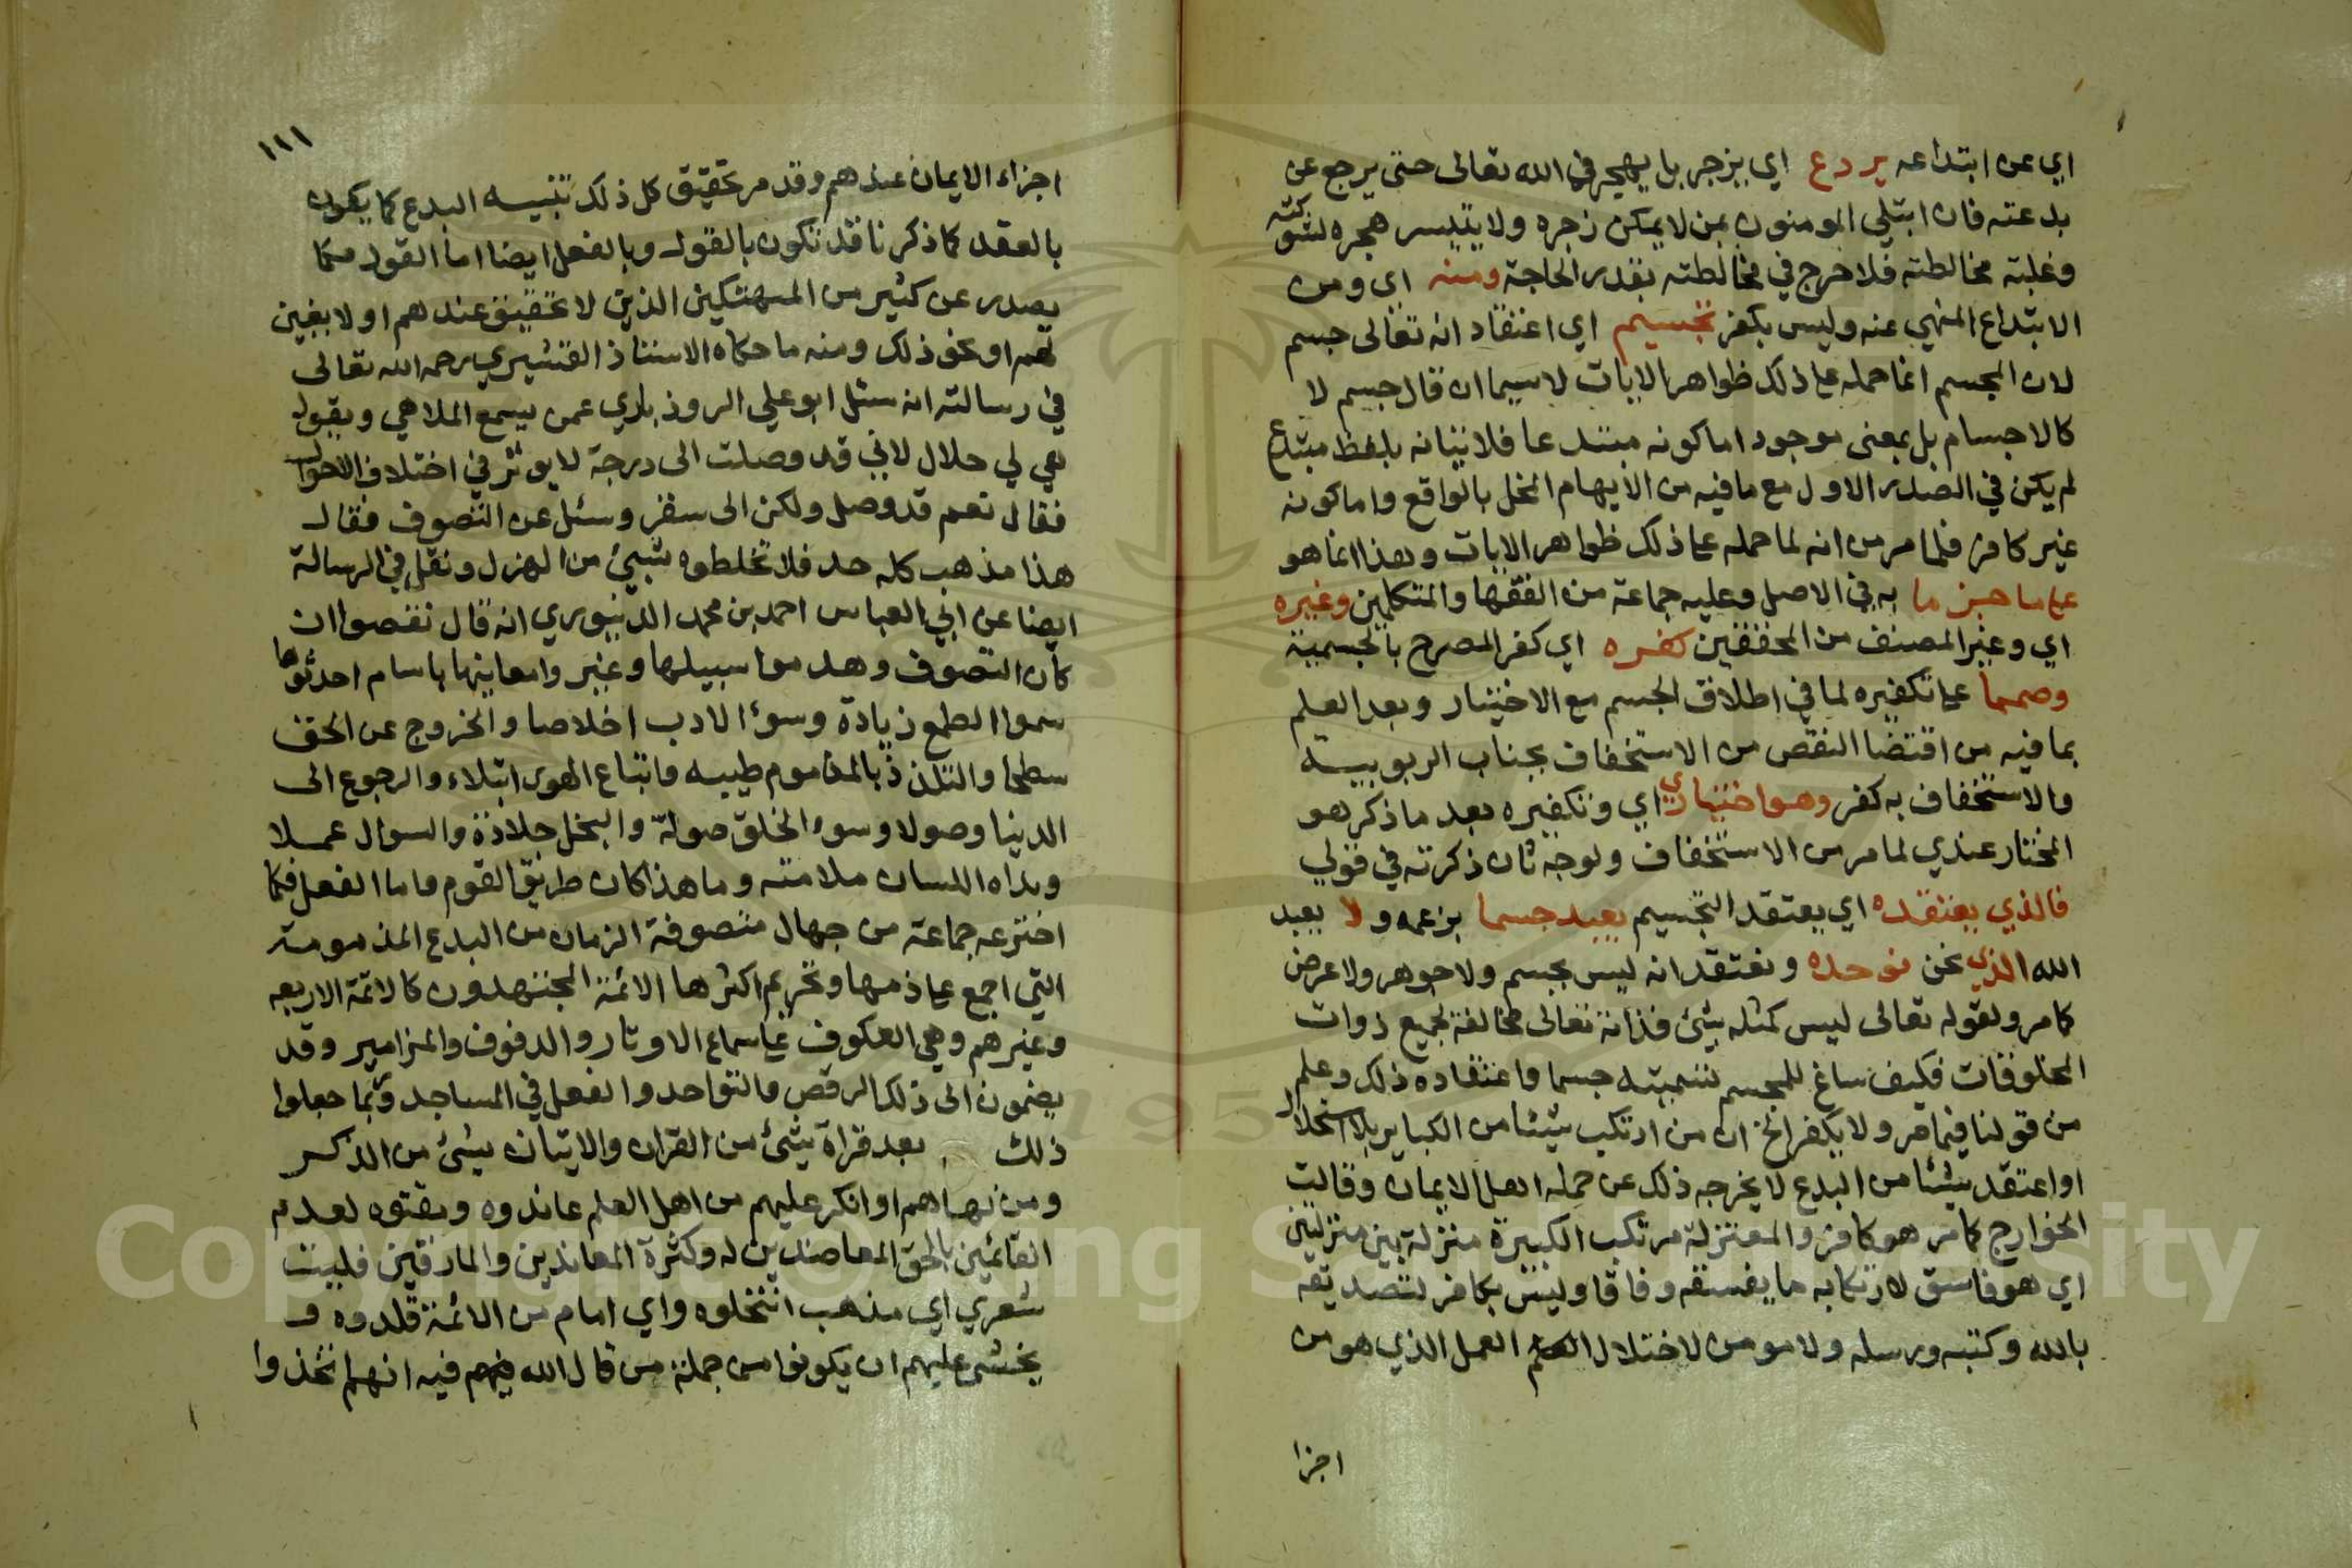 اي عن ابتداعه يردع اي يزجر بل يهجر في الله تعالى حتى يرجع عن
بدعته فان ابتلي المومنون بمن لا يمكن زجره ولا يتيسر هجره لشوكته
وغلبته مخالطته فلا حرج في مخالطته بقدر الحاجة ومنه اي ومن
الابتداع المنهي عنه وليس بكفر تجسيم اي اعتقاد انه تعالى جسم
لان المجسم انما حمله على ذلك ظواهر الايات لا سيما ان قال جسم لا
كالاجسام بل بمعنى موجود اما كونه مبتدعا فلاتيانه بلفظ مبتدع
لم يكن في الصدر الاول مع ما فيه من الايهام المخل بالواقع واما كونه
غير كافر فلما مر من انه لما حمله على ذلك ظواهر الايات وهذا انما هو
على ما جزما به في الاصل وعليه جماعة من الفقها والمتكلمين وغيره
اي وغير المصنف من المحققين كفره اي كفر المصرح بالجسمية
وصمما على تكفيره لما في اطلاق الجسم مع الاختيار وبعد العلم
بما فيه من اقتضا النقص من الاستخفاف بجناب الربوبيه
والاستخفاف به كفر وهو اختياري اي وتكفيره بعد ما ذكر هو
المختار عندي لما مر من الاستخفاف ولوجه ثان ذكرته في قولي
فالذي يعتقده اي يعتقد التجسيم يعبد جسما بزعمه ولا يعبد
الله الذي نحن نوحده ونعتقد انه ليس بجسم ولا جوهر ولا عرض
كما مر ولقوله تعالى ليس كمثله شئ فذاته تعالى مخالفة لجميع ذوات
المخلوقات فكيف ساغ للمجسم تسميته جسما واعتقاده ذلك وعلم
من قولنا فيما مر ولا يكفر الخ ان من ارتكب شيئا من الكباير بلا استحلال
او اعتقد شيئا من البدع لا يخرجه ذلك عن جمله اهل الايمان وقالت
الخوارج كما مر هو كافر والمعتزلة مرتكب الكبيرة منزلة بين منزلتين
اي هو فاسق لارتكابه ما يفسقه وفاقا وليس بكافر لتصديقه
بالله وكتبه ورسله ولا مومن لاختلال العمل الذي هو من
اجزا
١١١
اجزاء الايمان عندهم وقد مر تحقيق كل ذلك تنبيه البدع كما يكون
بالعقد كما ذكرنا قد تكون بالقول وبالفعل ايضا اما القول فكما
يصدر عن كثير من المتهتكين الذين لا تحقيق عندهم او لا يقين
لهم او نحو ذلك ومنه ما حكاه الاستاذ القشيري رحمه الله تعالى
في رسالته انه سئل ابو علي الروذباري عمن يسمع الملاهي ويقول
هي لي حلال لاني قد وصلت الى درجة لا يوثر في اختلاف الاحوال
فقال نعم قد وصل ولكن الى سقر وسئل عن التصوف فقال
هذا مذهب كله جد فلا تخلطوه بشيئ من الهزل ونقل في الرسالة
ايضا عن ابي العباس احمد بن محمد الدينوري انه قال نقصوا اركان
كان التصوف وهدموا سبيلها وغيروا معاينها باسام احدثوها
سموا الطمع زيادة وسوء الادب اخلاصا والخروج عن الحق
سطحا والتلذذ بالمذموم طيبه واتباع الهوى ابتلاء والرجوع الى
الدنيا وصولا وسوء الخلق صولة والبخل جلادة والسوال عملا
وبذاه اللسان ملامته وما هذا كان طريق القوم واما الفعل فكما
اخترعه جماعة من جهال متصوفة الزمان من البدع المذمومة
التي اجمع على ذمها وتحريم اكثرها الائمة المجتهدون كالائمة الاربعه
وغيرهم وهي العكوف على سماع الاوتار والدفوف والمزامير وقد
يضمون الى ذلك الرقص والتواجد والفعل في المساجد وربما جعلوا
ذلك بعد قراة شئ من القران والاتيان بشئ من الذكر
ومن نهاهم او انكر عليهم من اهل العلم عاندوه ومقتوه لعدم
القائمين بالحق المعاضدين له وكثرة المعاندين والمارقين فليت
شعري اي مذهب انتحلوه واي امام من الائمة قلدوه و
يخشى عليهم ان يكونوا من جملة من قال الله فيهم فيه انهم اتخذوا
Copyright © King Saud University
195